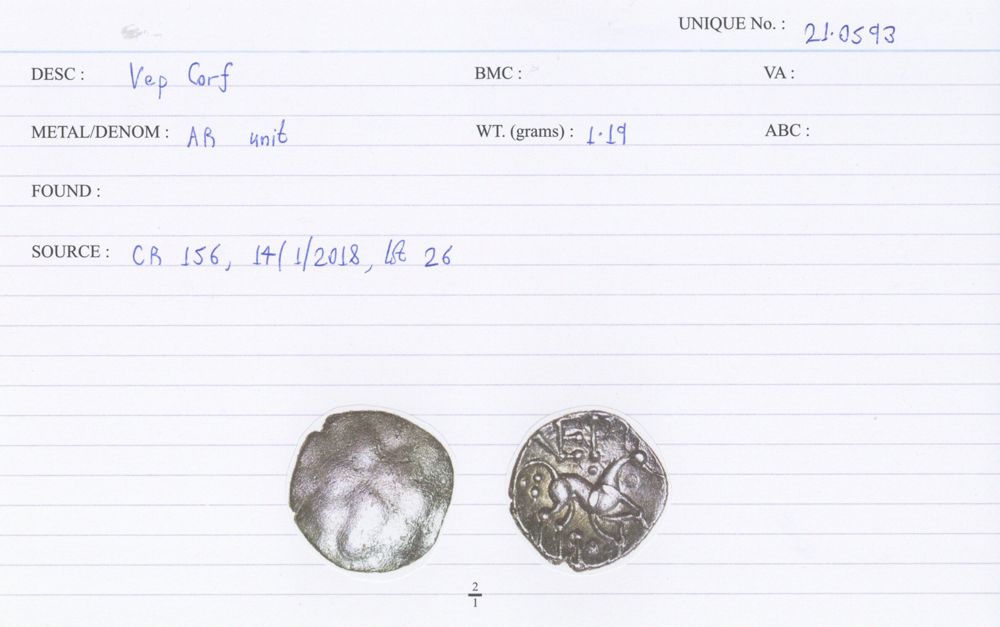 UNIQUE No. : 21.0593
DESC : Vep Corf
BMC :
VA :
METAL/DENOM : AR unit
WT. (grams) : 1.19
ABC :
FOUND :
SOURCE : CR 156, 14/1/2018, lot 26
VEP
2
1